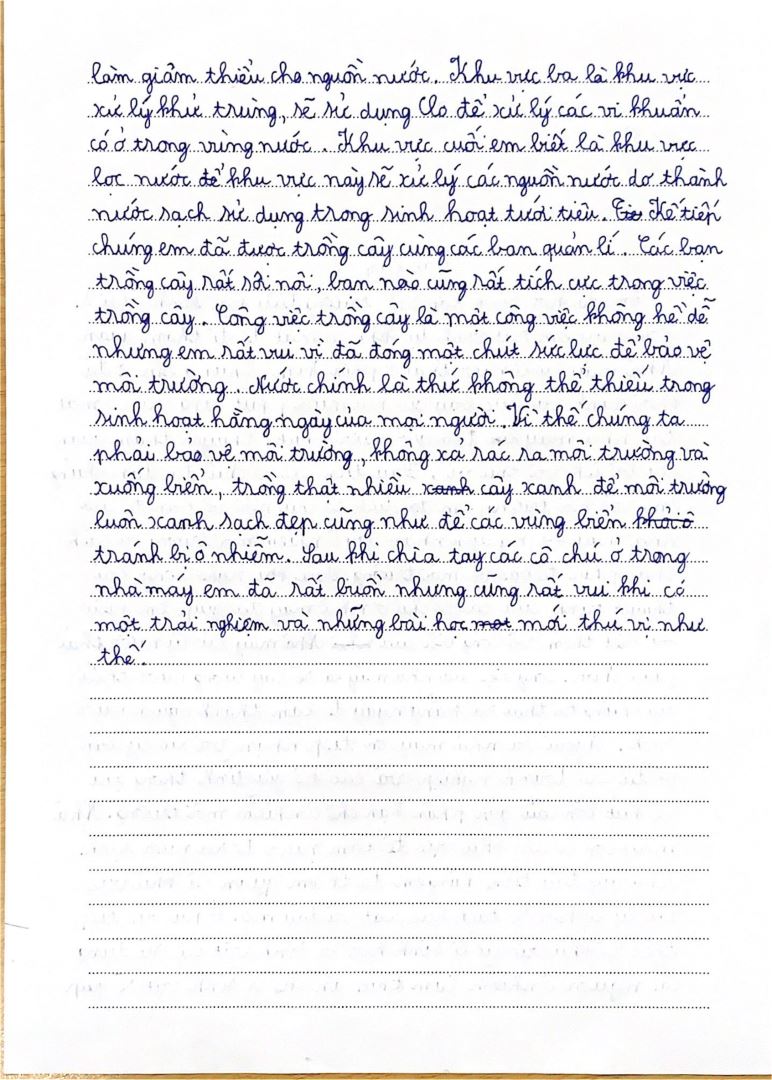 làm giảm thiểu cho nguồn nước. Khu vực ba là khu vực
xử lý khử trùng, sẽ sử dụng Clo để xử lý các vi khuẩn
có ở trong vùng nước. Khu vực cuối em biết là khu vực
lọc nước để khu vực này sẽ xử lý các nguồn nước dơ thành
nước sạch sử dụng trong sinh hoạt tưới tiêu. Kế tiếp
chúng em đã được trồng cây cùng các bạn quản lí. Các bạn
trồng cây rất sôi nổi, bạn nào cũng rất tích cực trong việc
trồng cây. Công việc trồng cây là một công việc không hề dễ
nhưng em rất vui vì đã đóng một chút sức lực để bảo vệ
môi trường. Nước chính là thứ không thể thiếu trong
sinh hoạt hằng ngày của mọi người. Vì thế chúng ta
phải bảo vệ môi trường, không xả rác ra môi trường và
xuống biển, trồng thật nhiều xanh cây xanh để môi trường
luôn xanh sạch đẹp cũng như để các vùng biển
tránh bị ô nhiễm. Sau khi chia tay các cô chú ở trong
nhà máy em đã rất buồn nhưng cũng rất vui khi có
một trải nghiệm và những bài học một mới thú vị như
thế.